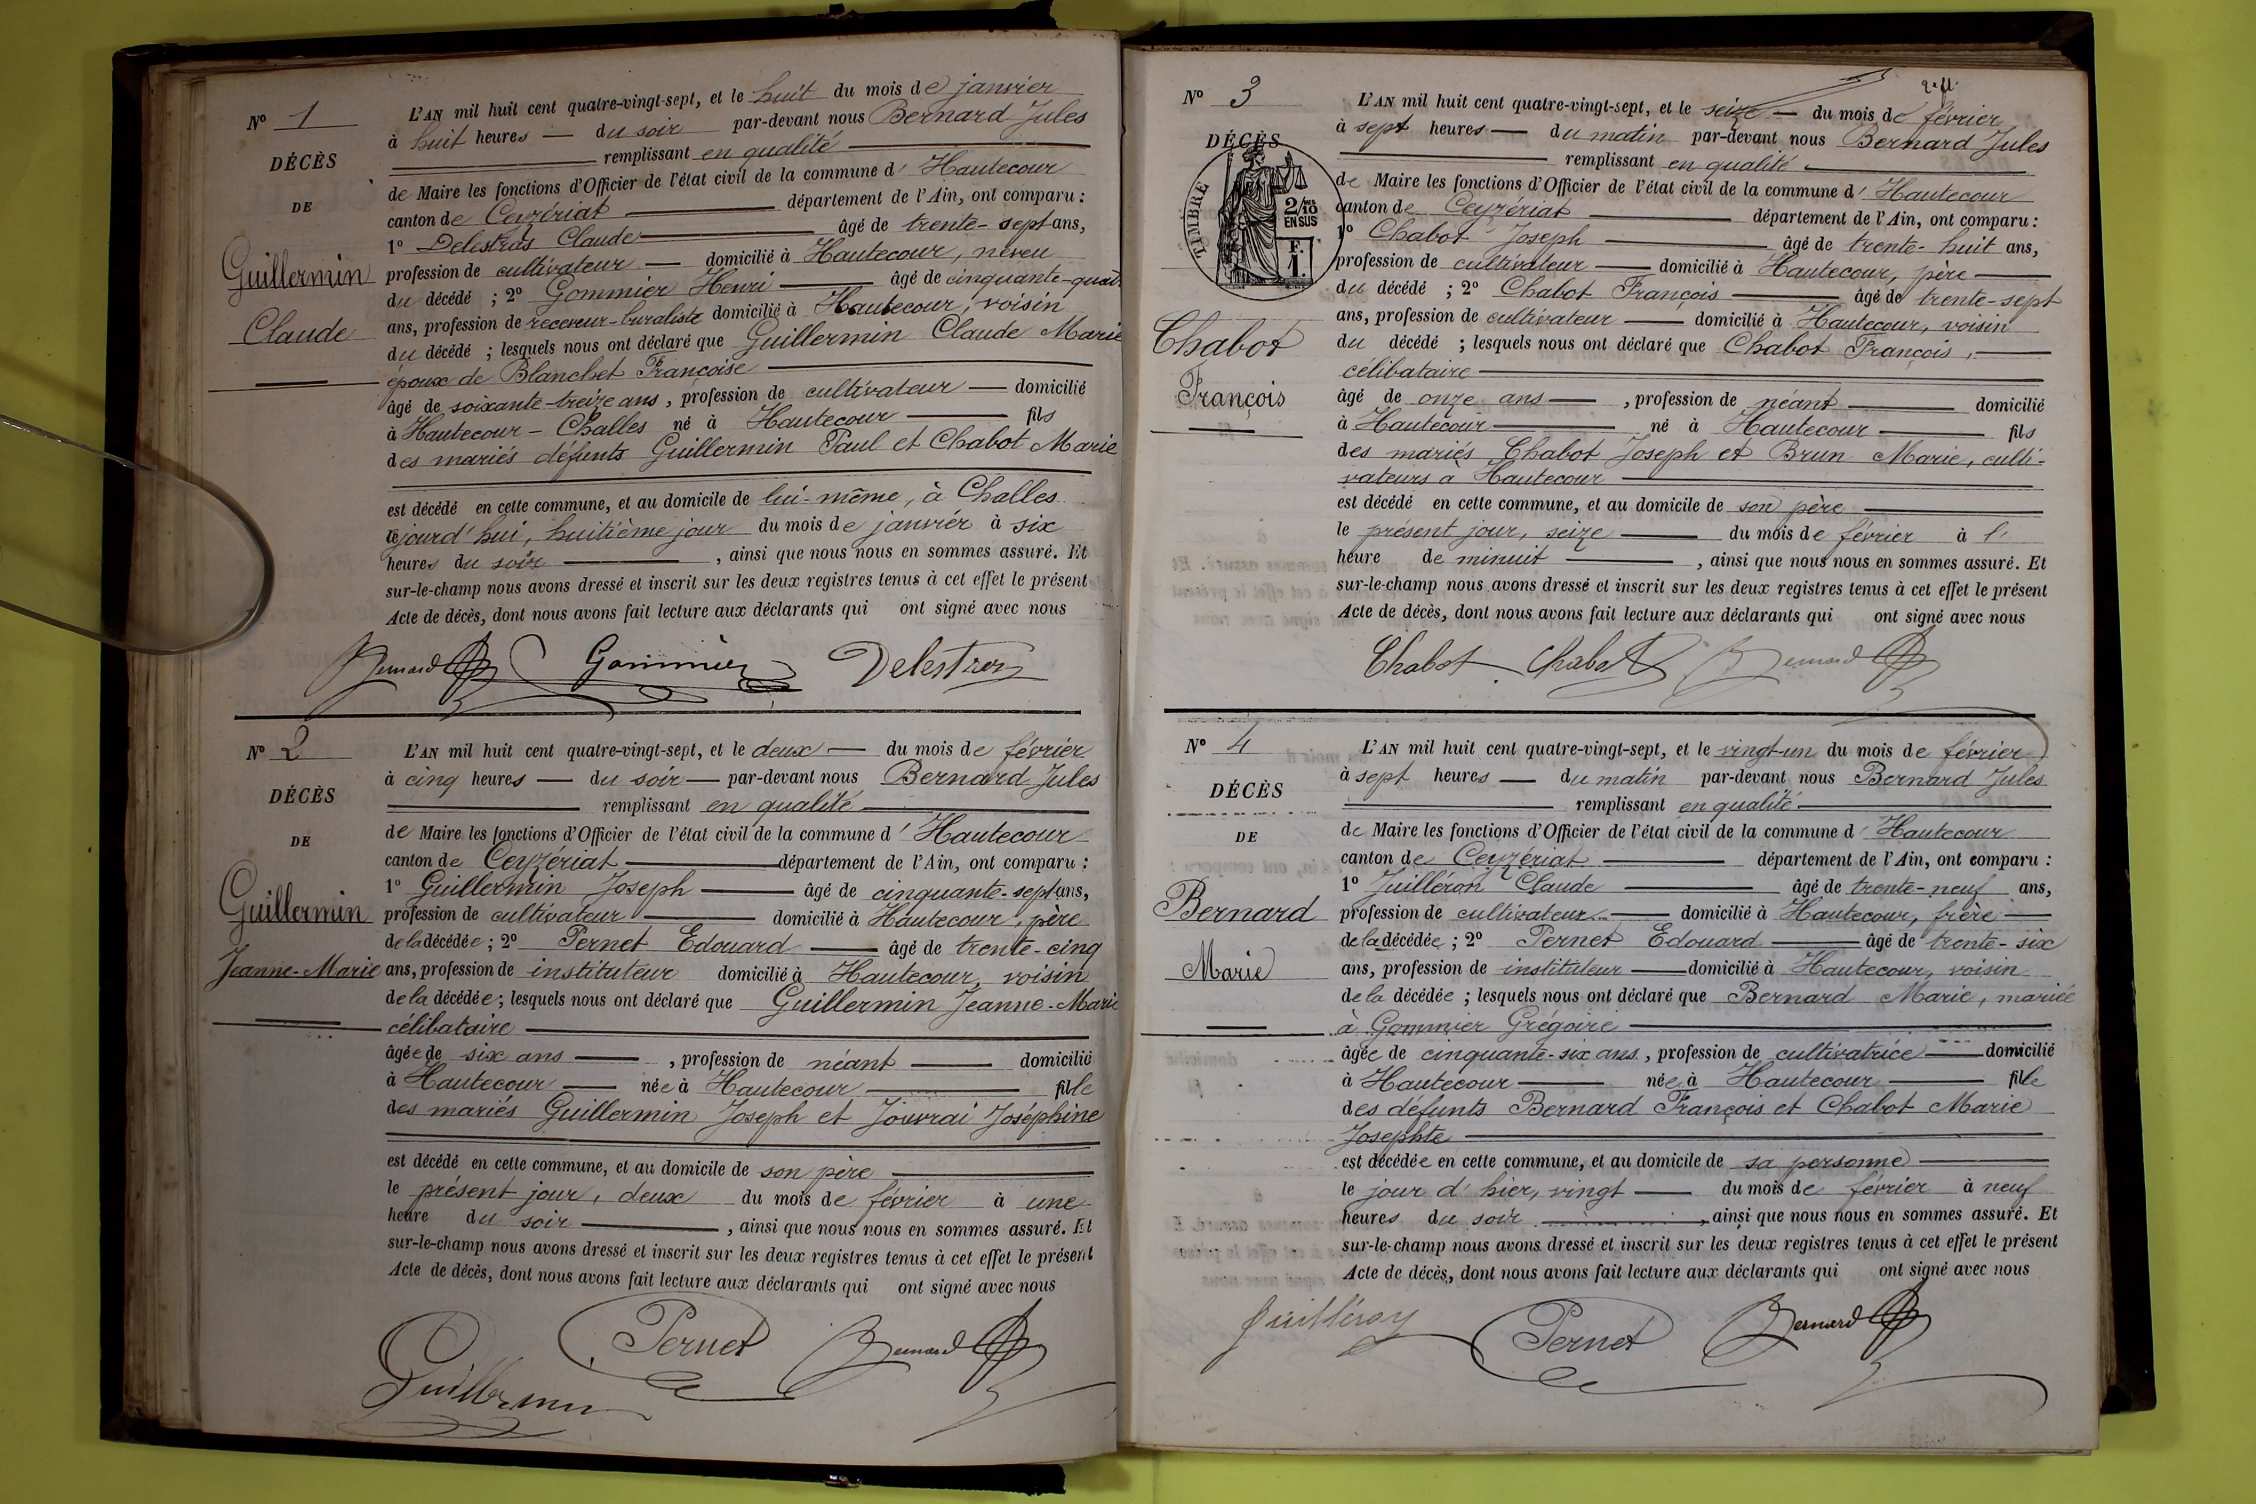 N° 1
DÉCÈS
DE
Guillermin
Claude
L'AN mil huit cent quatre-vingt-sept, et le huit du mois de janvier
à huit heures du soir par-devant nous Bernard Jules
remplissant en qualité
de Maire les fonctions d'Officier de l'état civil de la commune d'Hautecour
canton de Ceyzériat département de l'Ain, ont comparu :
1° Delestras Claude âgé de trente-sept ans,
profession de cultivateur domicilié à Hautecour, neveu
du décédé ; 2° Gommier Henri âgé de cinquante-quatre
ans, profession de receveur-buraliste domicilié à Hautecour, voisin
du décédé ; lesquels nous ont déclaré que Guillermin Claude Marie
époux de Blanchet Françoise
âgé de soixante-treize ans, profession de cultivateur domicilié
à Hautecour - Challes né à Hautecour fils
des mariés défunts Guillermin Paul et Chabot Marie
est décédé en cette commune, et au domicile de lui-même, à Challes
jourd'hui, huitième jour du mois de janvier à six
heures du soir, ainsi que nous nous en sommes assuré. Et
sur-le-champ nous avons dressé et inscrit sur les deux registres tenus à cet effet le présent
Acte de décès, dont nous avons fait lecture aux déclarants qui ont signé avec nous
Bernard Gommier Delestras
N° 2
DÉCÈS
DE
Guillermin
Jeanne-Marie
L'AN mil huit cent quatre-vingt-sept, et le deux du mois de février
à cinq heures du soir par-devant nous Bernard Jules
remplissant en qualité
de Maire les fonctions d'Officier de l'état civil de la commune d'Hautecour
canton de Ceyzériat département de l'Ain, ont comparu :
1° Guillermin Joseph âgé de cinquante-sept ans,
profession de cultivateur domicilié à Hautecour, père
de la décédée ; 2° Pernet Edouard âgé de trente-cinq
ans, profession de instituteur domicilié à Hautecour, voisin
de la décédée ; lesquels nous ont déclaré que Guillermin Jeanne-Marie
célibataire
âgée de six ans, profession de néant domicilié
à Hautecour née à Hautecour fille
des mariés Guillermin Joseph et Jouvrai Joséphine
est décédé en cette commune, et au domicile de son père
le présent jour, deux du mois de février à une
heure du soir, ainsi que nous nous en sommes assuré. Et
sur-le-champ nous avons dressé et inscrit sur les deux registres tenus à cet effet le présent
Acte de décès, dont nous avons fait lecture aux déclarants qui ont signé avec nous
Guillermin Pernet Bernard
N° 3
DÉCÈS
TIMBRE
2/10 EN SUS
F. 1.
Chabot
François
L'AN mil huit cent quatre-vingt-sept, et le seize du mois de février
à sept heures du matin par-devant nous Bernard Jules
remplissant en qualité
de Maire les fonctions d'Officier de l'état civil de la commune d'Hautecour
canton de Ceyzériat département de l'Ain, ont comparu :
1° Chabot Joseph âgé de trente-huit ans,
profession de cultivateur domicilié à Hautecour, père
du décédé ; 2° Chabot François âgé de trente-sept
ans, profession de cultivateur domicilié à Hautecour, voisin
du décédé ; lesquels nous ont déclaré que Chabot François,
célibataire
âgé de onze ans, profession de néant domicilié
à Hautecour né à Hautecour fils
des mariés Chabot Joseph et Brun Marie, culti-
vateurs à Hautecour
est décédé en cette commune, et au domicile de son père
le présent jour, seize du mois de février à l'
heure de minuit, ainsi que nous nous en sommes assuré. Et
sur-le-champ nous avons dressé et inscrit sur les deux registres tenus à cet effet le présent
Acte de décès, dont nous avons fait lecture aux déclarants qui ont signé avec nous
Chabot Chabot Bernard
N° 4
DÉCÈS
DE
Bernard
Marie
L'AN mil huit cent quatre-vingt-sept, et le vingt-un du mois de février
à sept heures du matin par-devant nous Bernard Jules
remplissant en qualité
de Maire les fonctions d'Officier de l'état civil de la commune d'Hautecour
canton de Ceyzériat département de l'Ain, ont comparu :
1° Juilléron Claude âgé de trente-neuf ans,
profession de cultivateur domicilié à Hautecour, frère
de la décédée ; 2° Pernet Edouard âgé de trente-six
ans, profession de instituteur domicilié à Hautecour, voisin
de la décédée ; lesquels nous ont déclaré que Bernard Marie, mariée
à Gommier Grégoire
âgée de cinquante-six ans, profession de cultivatrice domicilié
à Hautecour née à Hautecour fille
des défunts Bernard François et Chabot Marie
Josephte
est décédée en cette commune, et au domicile de sa personne
le jour d'hier, vingt du mois de février à neuf
heures du soir, ainsi que nous nous en sommes assuré. Et
sur-le-champ nous avons dressé et inscrit sur les deux registres tenus à cet effet le présent
Acte de décès, dont nous avons fait lecture aux déclarants qui ont signé avec nous
Juilléron Pernet Bernard